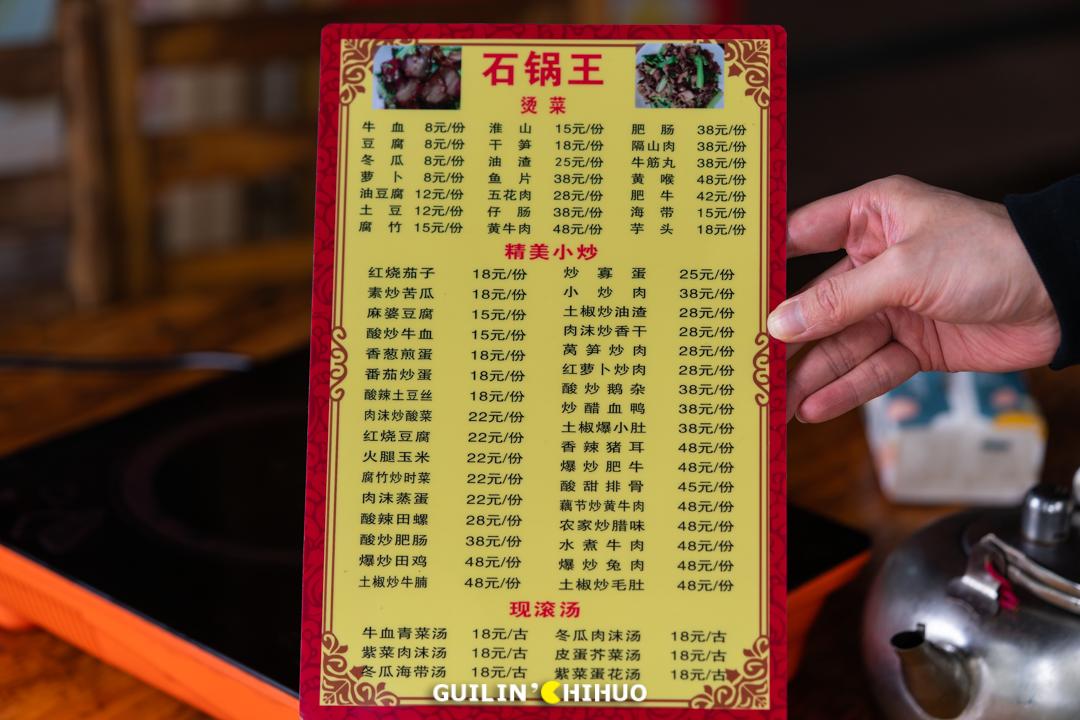 石锅王
烫菜
牛血 8元/份 淮山 15元/份 肥肠 38元/份
豆腐 8元/份 干笋 18元/份 隔山肉 38元/份
冬瓜 8元/份 油渣 25元/份 牛筋丸 38元/份
萝卜 8元/份 鱼片 38元/份 黄喉 48元/份
油豆腐 12元/份 五花肉 28元/份 肥牛 42元/份
土豆 12元/份 仔肠 38元/份 海带 15元/份
腐竹 15元/份 黄牛肉 48元/份 芋头 18元/份
精美小炒
红烧茄子 18元/份 炒寡蛋 25元/份
素炒苦瓜 18元/份 小炒肉 38元/份
麻婆豆腐 15元/份 土椒炒油渣 28元/份
酸炒牛血 15元/份 肉沫炒香干 28元/份
香葱煎蛋 18元/份 莴笋炒肉 28元/份
番茄炒蛋 18元/份 红萝卜炒肉 28元/份
酸辣土豆丝 18元/份 酸炒鹅杂 38元/份
肉沫炒酸菜 22元/份 炒醋血鸭 38元/份
红烧豆腐 22元/份 土椒爆小肚 38元/份
火腿玉米 22元/份 香辣猪耳 48元/份
腐竹炒时菜 22元/份 爆炒肥牛 48元/份
肉沫蒸蛋 22元/份 酸甜排骨 45元/份
酸辣田螺 28元/份 藕节炒黄牛肉 48元/份
酸炒肥肠 38元/份 农家炒腊味 48元/份
爆炒田鸡 48元/份 水煮牛肉 48元/份
土椒炒牛腩 48元/份 爆炒兔肉 48元/份
土椒炒毛肚 48元/份
现滚汤
牛血青菜汤 18元/古 冬瓜肉沫汤 18元/古
紫菜肉沫汤 18元/古 皮蛋芥菜汤 18元/古
冬瓜海带汤 18元/古 紫菜蛋花汤 18元/古
GUILIN'CHIHUO